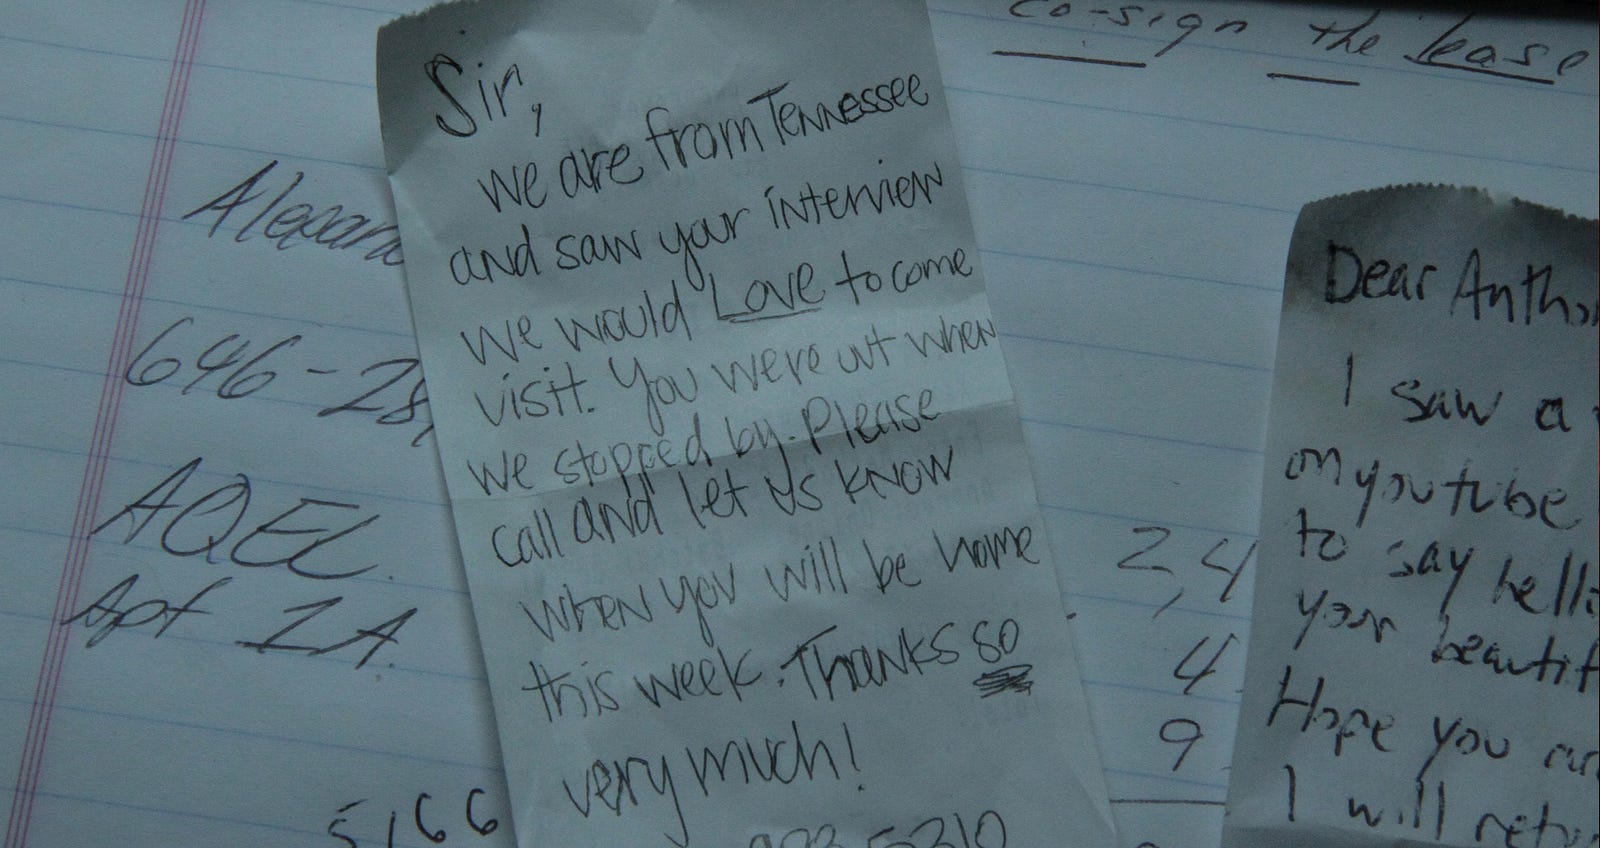 co-sign the lease
Alexan
646-28
AQEL.
Apt 1A.
5,66
Sir,
we are from Tennessee
and saw your interview
we would Love to come
visit. You were out when
we stopped by. Please
call and let us know
when you will be home
this week. Thanks so
very much!
5310
2,4
4
9
Dear Antho
I saw a
on youtube
to say hello
your beautif
Hope you ar
I will retu